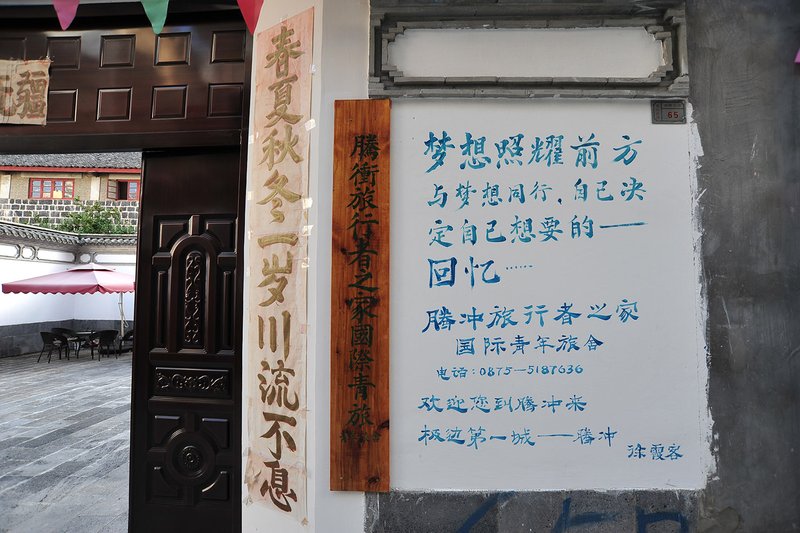 疆
春夏秋冬一岁川流不息
腾衝旅行者之家國際青旅
65
梦想照耀前方
与梦想同行，自己决
定自己想要的——
回忆……
腾冲旅行者之家
国际青年旅舍
电话：0875-5187636
欢迎您到腾冲来
极边第一城——腾冲
徐霞客